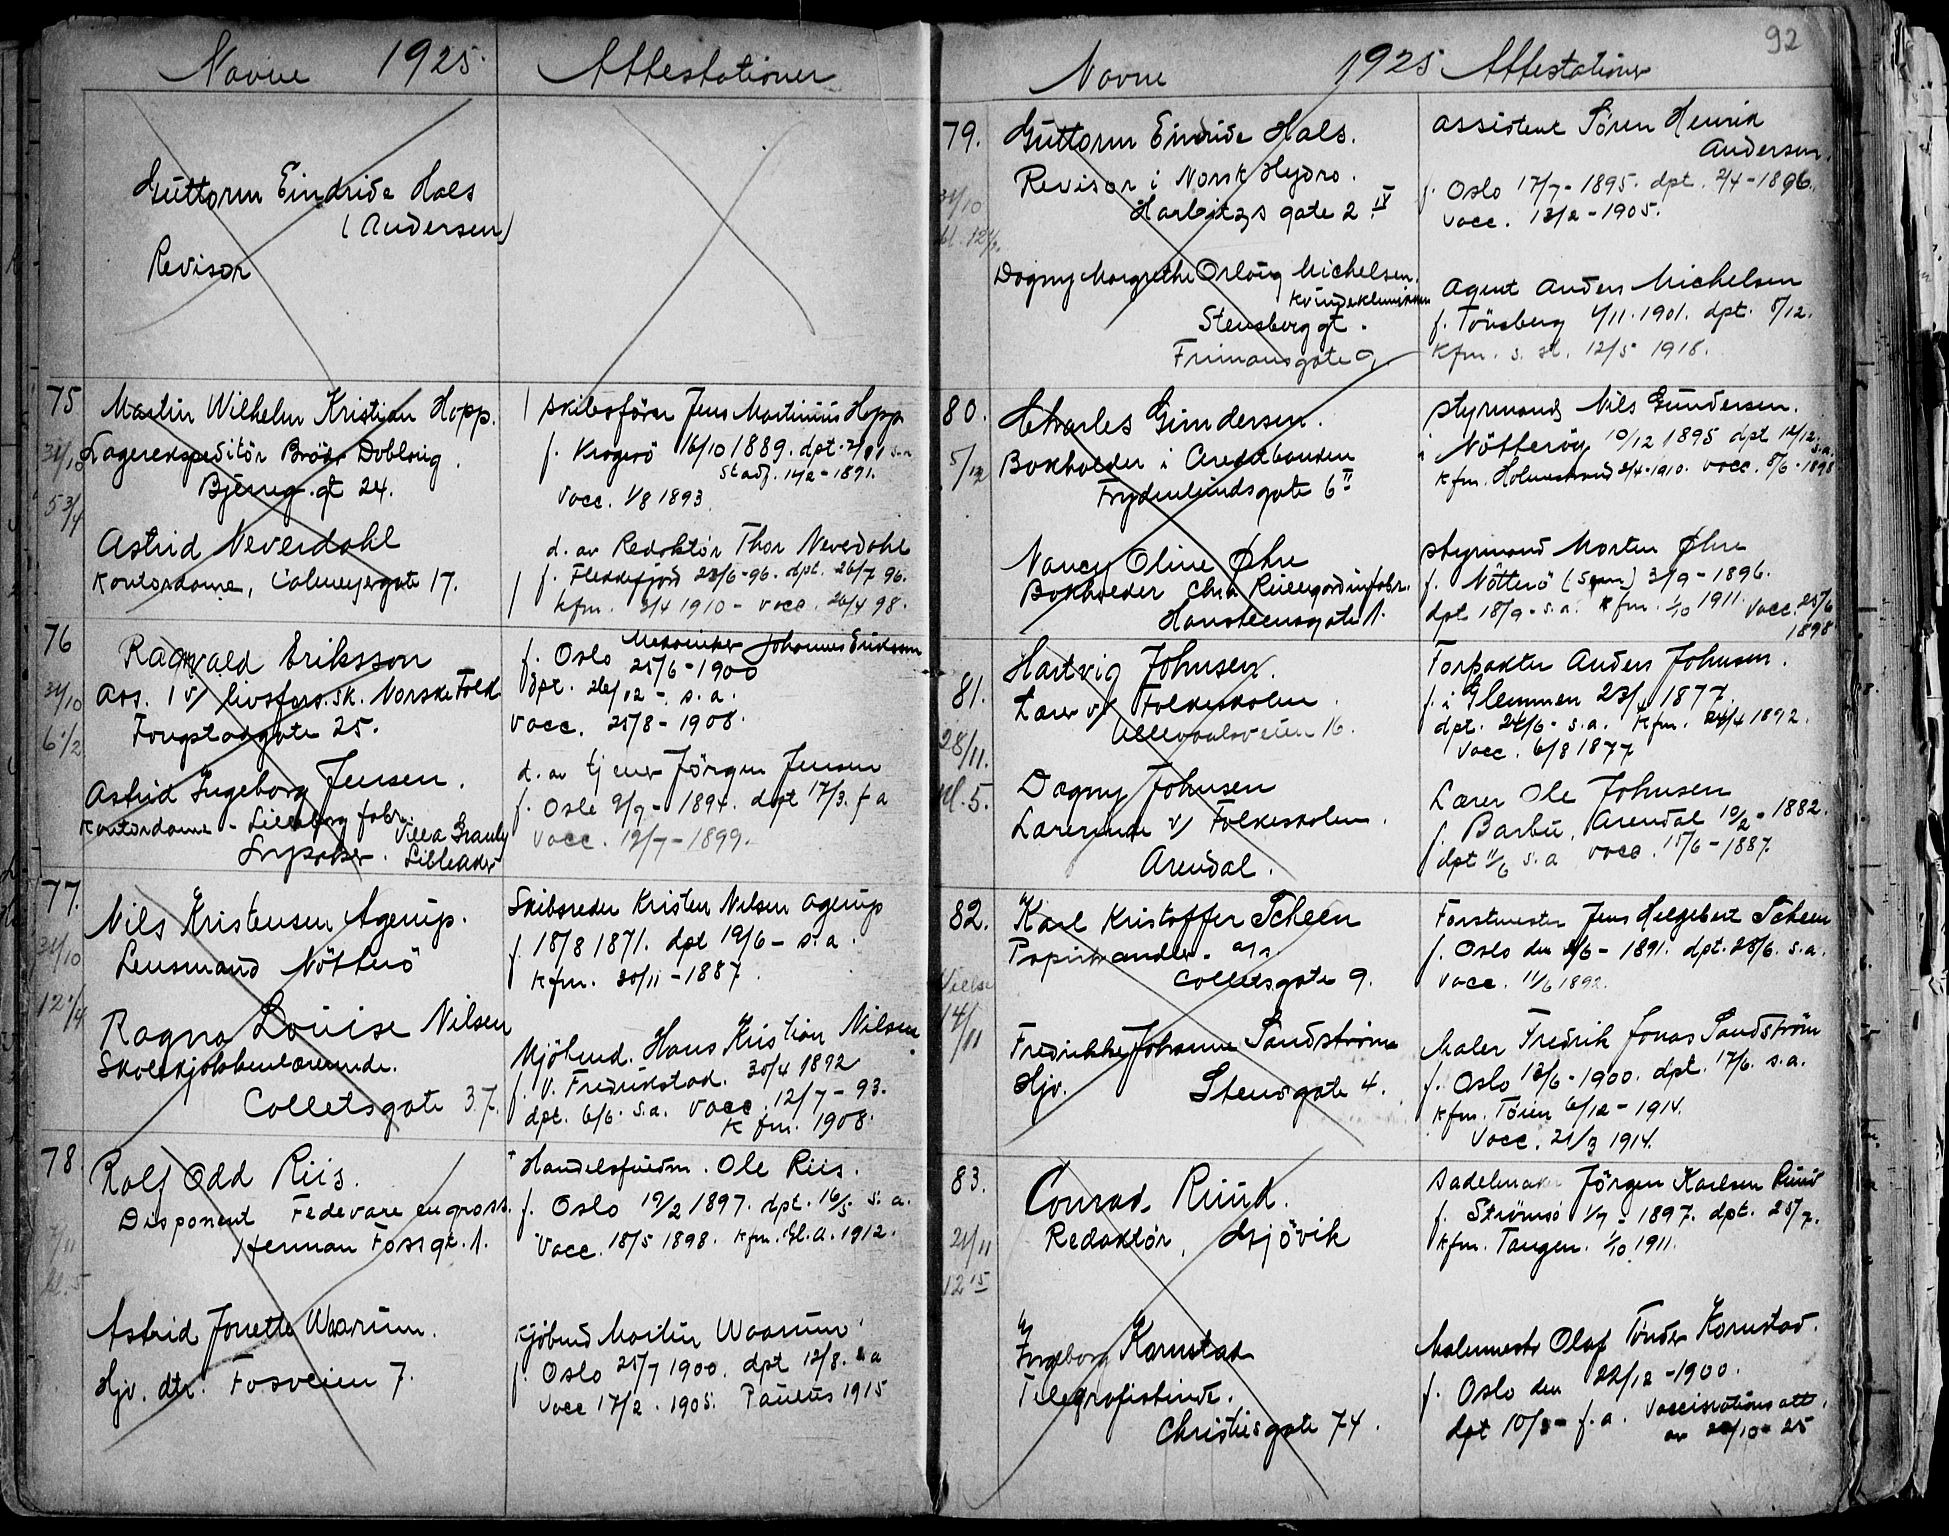 Navne 1925. Attestationer
Guttorm Eindride Hals
(Andersen)
Revisor
75
Martin Wilhelm Kristian Hopp.
Lagerekspeditör Bröd. Dobloug.
Bjerreg. gt 24.
31/10
5 3/4
Astrid Neverdahl
Kontordame, Calmeyersgate 17.
Skibsförer Jens Martinius Hopp
f. Kragerö 16/10 1889. dpt.
Stadf. 14/2-1891.
Vacc. 1/8 1893.
d. av Redaktör Thor Neverdahl
f. Flekkefjord 23/6-96. dpt. 26/7 96.
kfm. 3/4 1910 - vacc. 26/4 98.
76
Ragvald Eriksson
Ass. i v/ livsfors.sk. Norske Folk
Fougstadgate 25.
31/10
6 1/2
Astrid Ingeborg Jensen.
Kontordame - Lilleborg fabr.
Villa Granly
Lysaker. Lilleaker
Mekaniker Johannes Eriksson
f. Oslo 25/6-1900
dpt. 26/12 - s.a.
vacc. 25/8-1908.
d. av tjener Jörgen Jensen
f. Oslo 9/9-1894. dpt 17/3. f a
vacc. 12/7-1899.
77.
Nils Kristensen Agerup.
Lensmand Nötterö
31/10
12 1/4
Ragna Louise Nilsen
Skolekjökkenlærerinde.
Colletsgate 37.
Skibsreder Kristen Nilsen Agerup
f. 18/8 1871. dpt 19/6 - s.a.
kfm. 20/11-1887
Kjöbmd. Hans Kristian Nilsen.
f. V. Fredrikstad. 30/4 1892
dpt. 6/6. s.a. vacc. 12/7-93.
kfm. 1908.
78
Rolf Odd Riis.
Disponent Fedevare engros.
Herman Fossgt. 1.
7/11
kl. 5
Astrid Jonette Waarum.
Hjv. dtr. Fosveien 7.
Handelsfuldm. Ole Riis.
f. Oslo 19/2 1897. dpt. 16/5 s.a.
Vacc. 18/5 1898. kfm. Gl.A. 1912.
Kjöbmd Martin Waarum
f. Oslo 25/7 1900. dpt 12/8. s a
vacc 17/2. 1905. Paulus 1915
92
Navne 1925 Attestationer
79.
Guttorm Eindride Hals.
Revisor i Norsk Hydro.
Harbitzs gate 2 IV
31/10
kl. 12 1/2
Dagny Margrethe Orloug Michelsen.
Kvindeklinikken
Stensberg gt.
Frimansgate 9
Assistent Sören Henrik
Andersen.
f. Oslo 17/7-1895. dpt. 2/4-1896.
vacc. 13/2-1905.
Agent Anders Michelsen
f. Tönsberg 4/11.1901. dpt. 8/12.
kfm. s. st. 12/5 1918.
80.
Charles Gundersen.
Bokholder i Creditbanken
Frydenlundsgate 6 II
5/12
Nancy Oline Øhre
Bokholder Chra Rullegardinfabr.
Hansteensgate 1.
Styrmand Nils Gundersen.
i Nötteröy 10/12 1895 dpt 12/12. s.a.
kfm. Holmestrand 3/4-1910. vacc. 8/6-1898
Styrmand Morten Øhre
f. Nötterö (Sem) 3/9-1896.
dpt 18/9-s.a. kfm. 1/10 1911. vacc. 25/6
1898
81.
Hartvig Johnsen.
Lærer v/ Folkeskolen.
Ullevaalsveien 16.
28/11.
kl. 5.
Dagny Johnsen
Lærerinde v/ Folkeskolen.
Arendal.
Forpakter Anders Johnsen.
f. i Glemmen 23/4 1877
dpt. 24/6-s.a. kfm. 24/4 1892.
Vacc. 6/8 1877
Lærer Ole Johnsen
f. Barbu, Arendal 10/2-1882.
dpt 11/6 s.a vacc. 15/6-1887.
82.
Karl Kristoffer Scheen
Papirhandler.
Colletsgate 9.
14/11
Fredrikke Johanne Sandström
Hjv. Stensgate 4.
Forstmester Jens Helgebert Scheen
f. Oslo den 2/6-1891. dpt. 28/6. s.a.
Vacc. 11/6 1892.
Maler Fredrik Jonas Sandström
f. Oslo 13/6-1900. dpt. 17/6. s.a.
kfm. Töien 6/12-1914.
Vacc. 21/3 1914.
83.
Conrad Ruud.
Redaktör, Gjövik
21/11
12 15
Ingeborg Karnstad
Telegrafistinde.
Christiesgate 74.
Sadelmaker Jörgen Karlsen Ruud
f. Strömsö 1/7-1897. dpt. 25/7.
kfm. Tangen. 1/10 1911.
Malermester Olaf Tönder Karnstad.
f. Oslo den 22/12-1900.
dpt 10/3- f.a. Vaccinationsatt.
av 20/10-25